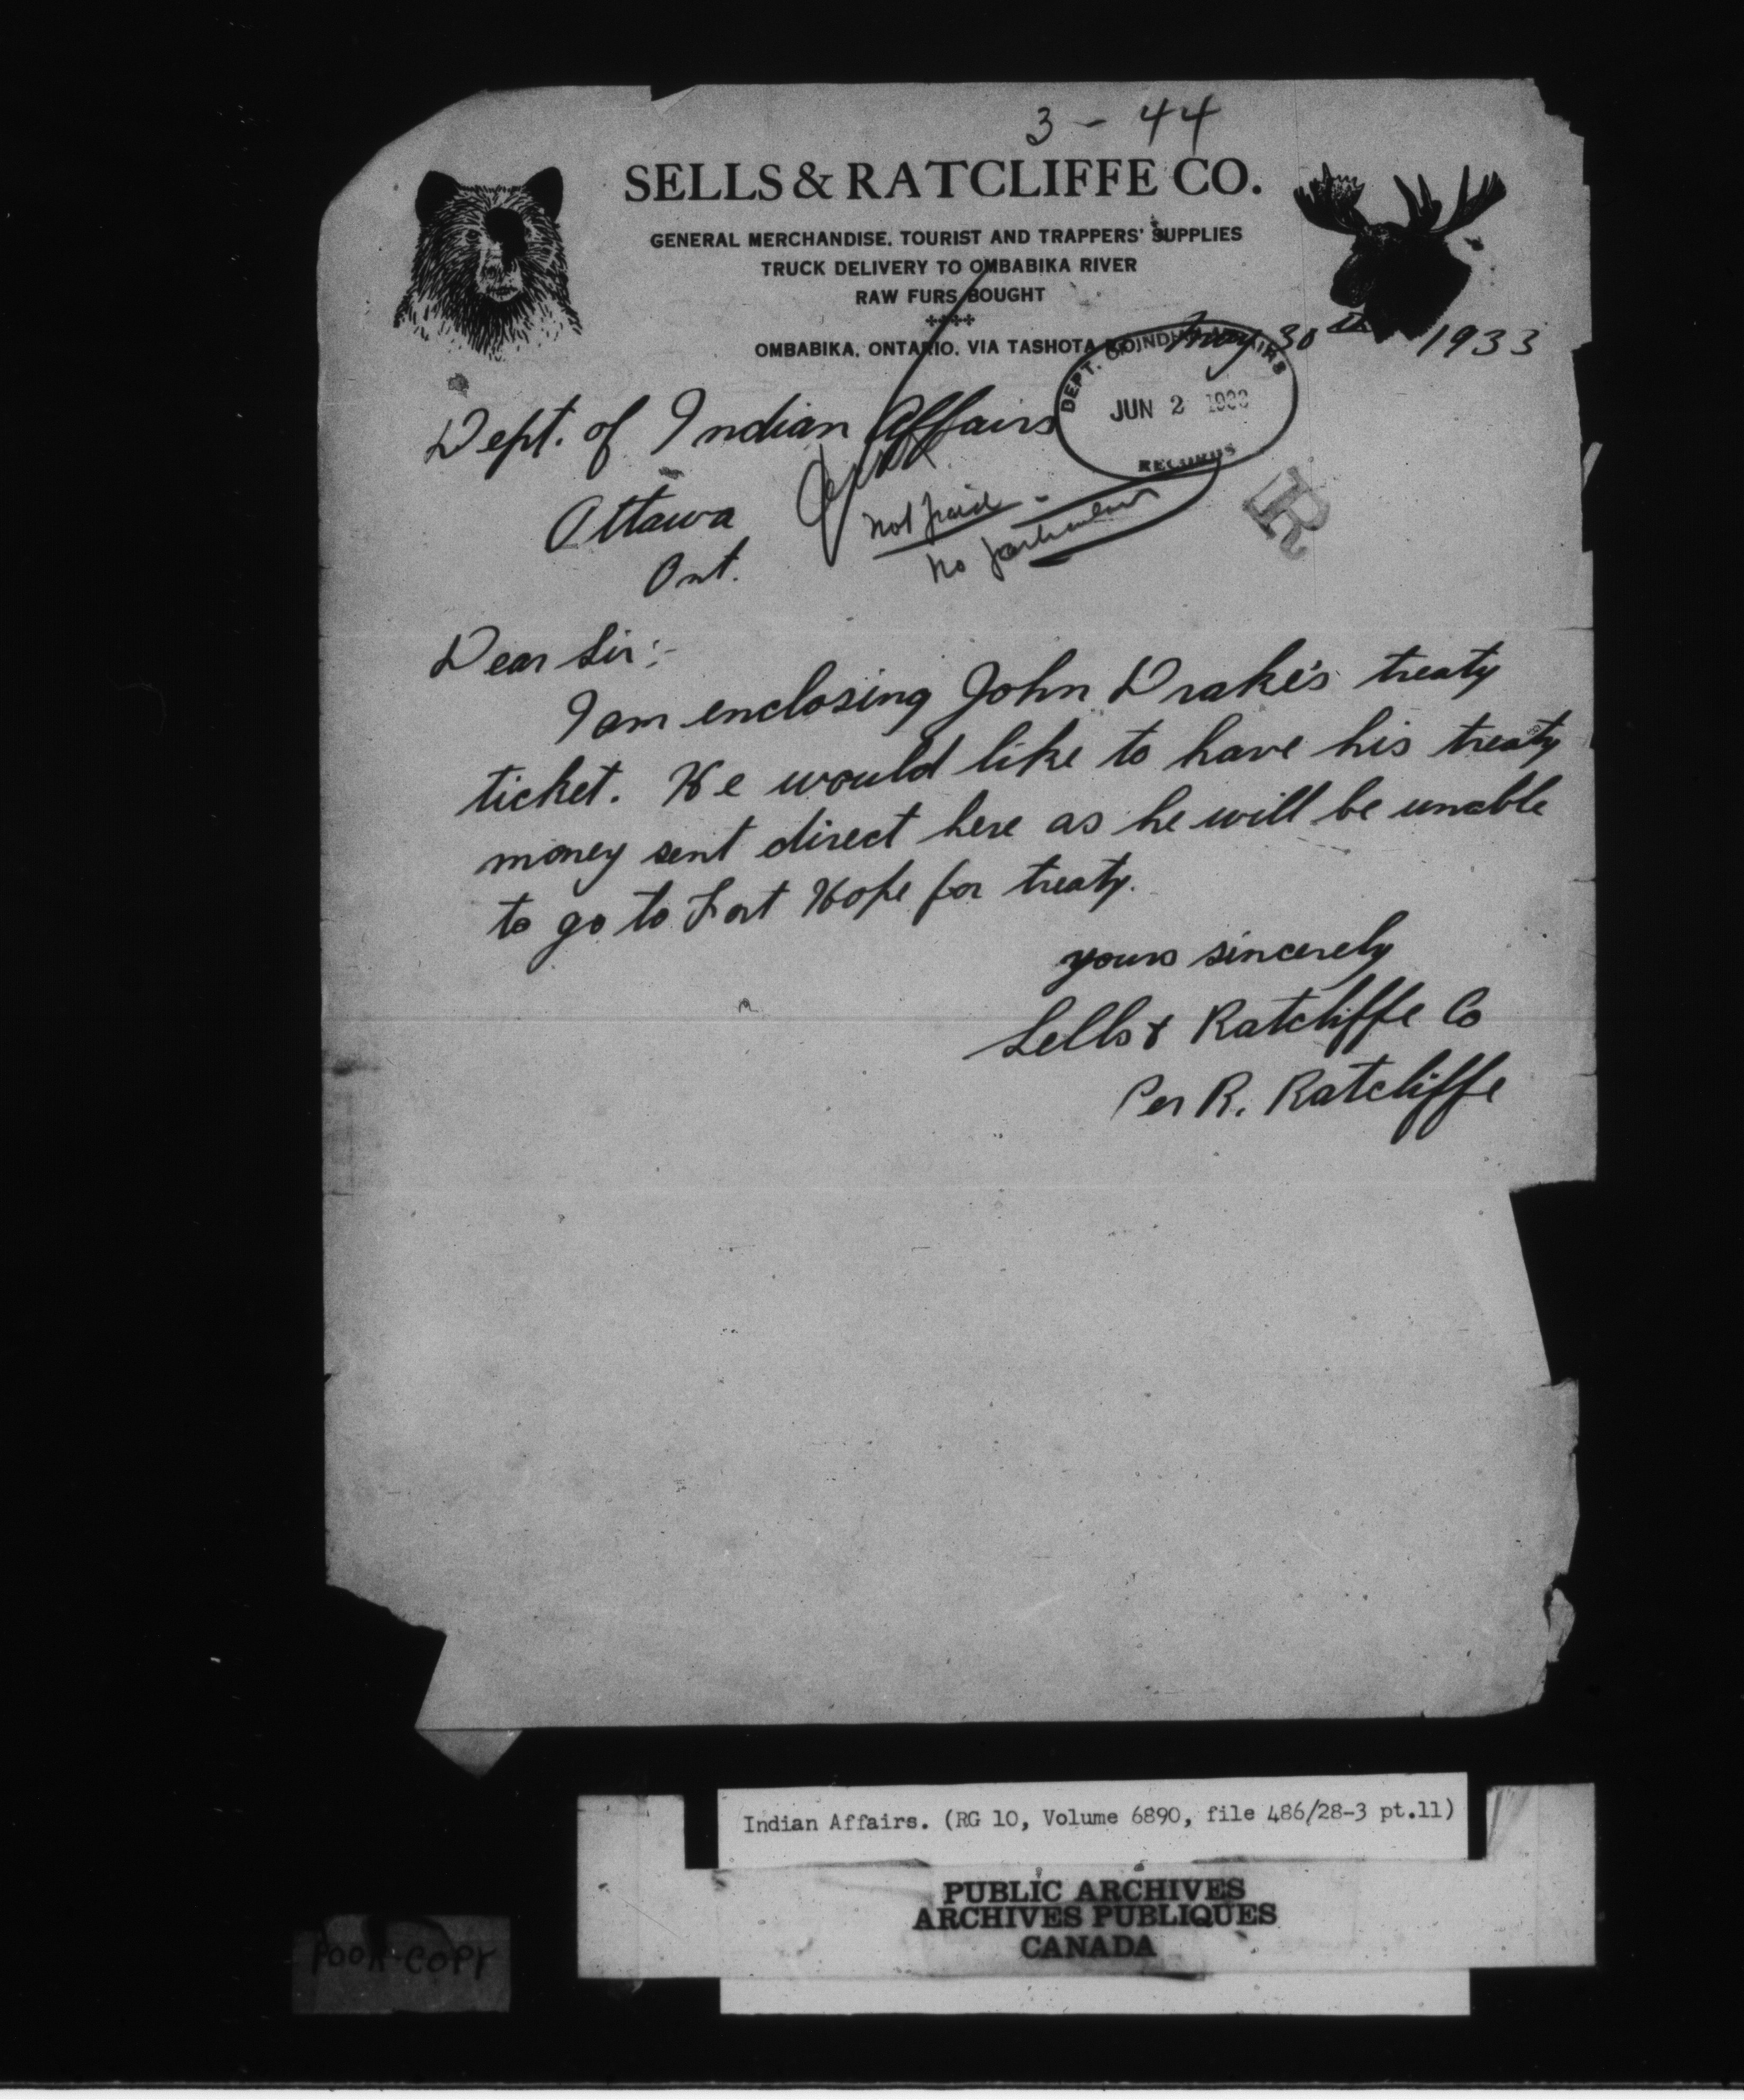 3 - 44
SELLS & RATCLIFFE CO.
GENERAL MERCHANDISE, TOURIST AND TRAPPERS' SUPPLIES
TRUCK DELIVERY TO OMBABIKA RIVER
RAW FURS BOUGHT
OMBABIKA, ONTARIO, VIA TASHOTA
May 30th 1933
DEPT. OF INDIAN AFFAIRS
JUN 2 1933
RECORDS
Dept. of Indian Affairs
Ottawa
Ont.
not paid -
no particulars
R
Dear Sir:-
I am enclosing John Drake's treaty
ticket. He would like to have his treaty
money sent direct here as he will be unable
to go to Fort Hope for treaty.
yours sincerely
Sells & Ratcliffe Co
Per R. Ratcliffe
Indian Affairs. (RG 10, Volume 6890, file 486/28-3 pt.11)
PUBLIC ARCHIVES
ARCHIVES PUBLIQUES
CANADA
POOR COPY